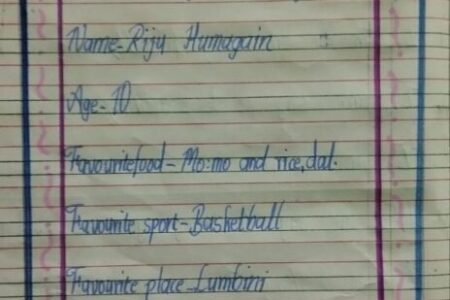 Name-Riju Humagain
Age-10
Favouritefood-Mo:mo and rice,dal.
Favourite sport-Basketball
Favourite place-Lumbini